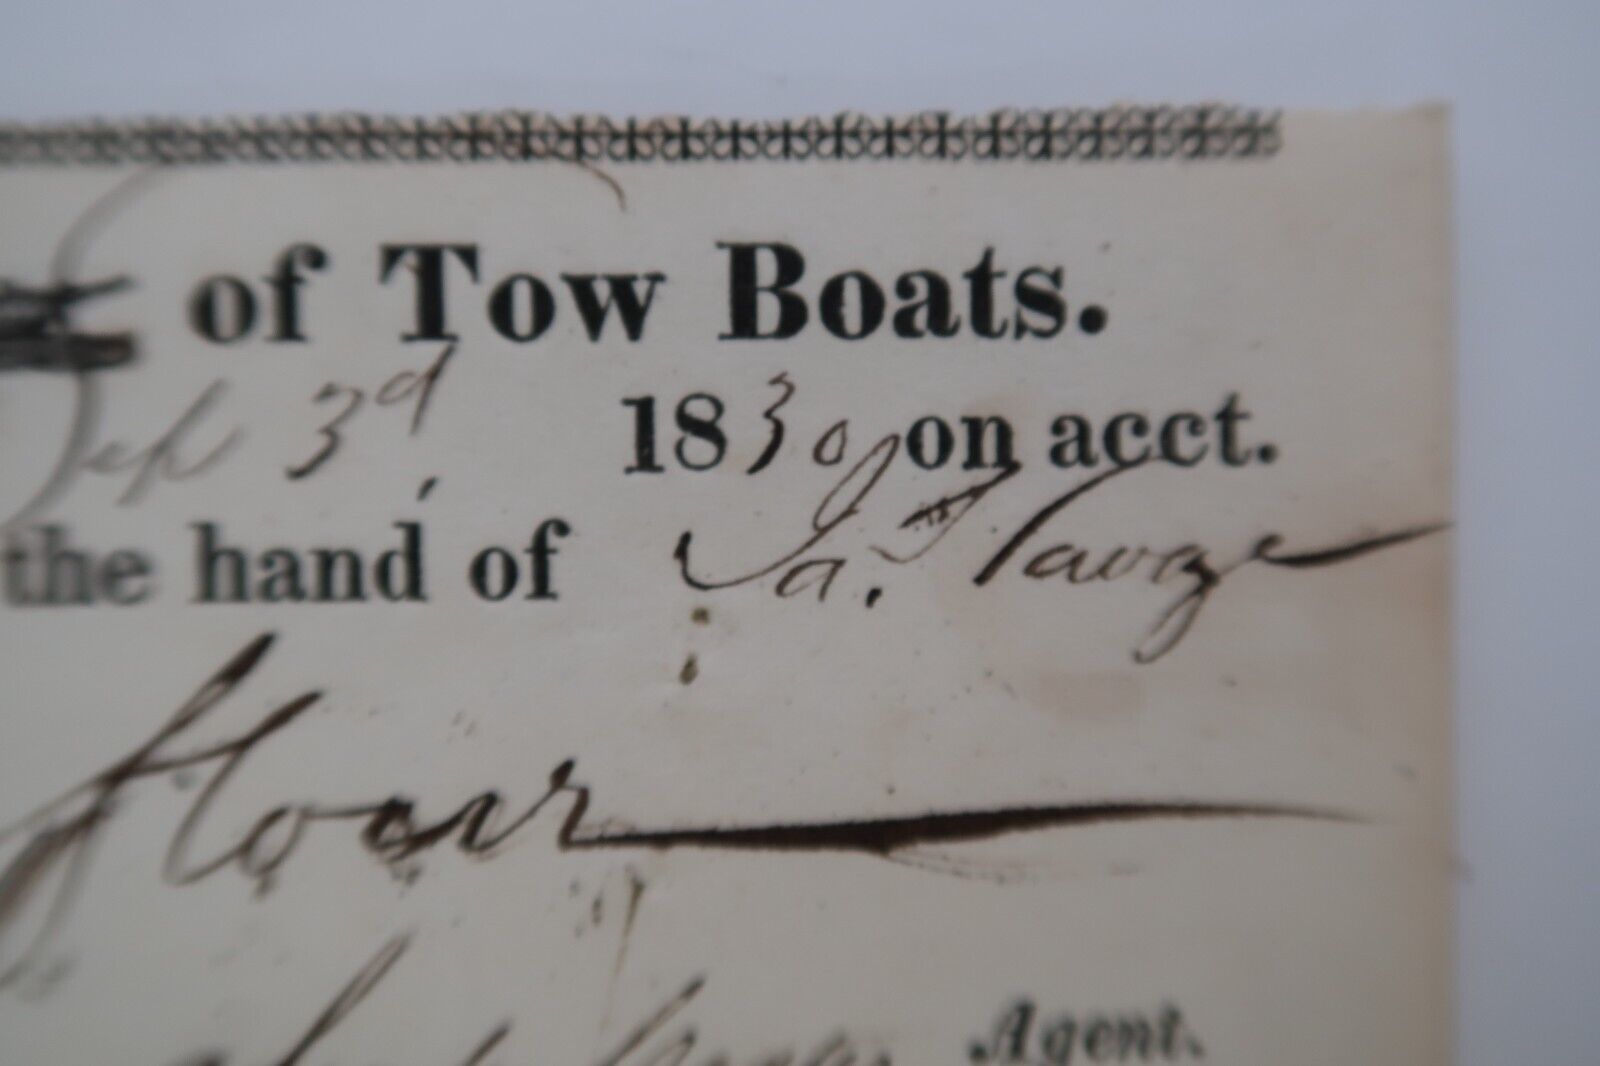 of Tow Boats.
Sep 3d 1830 on acct.
the hand of Ja. Savage
flour
Agent.